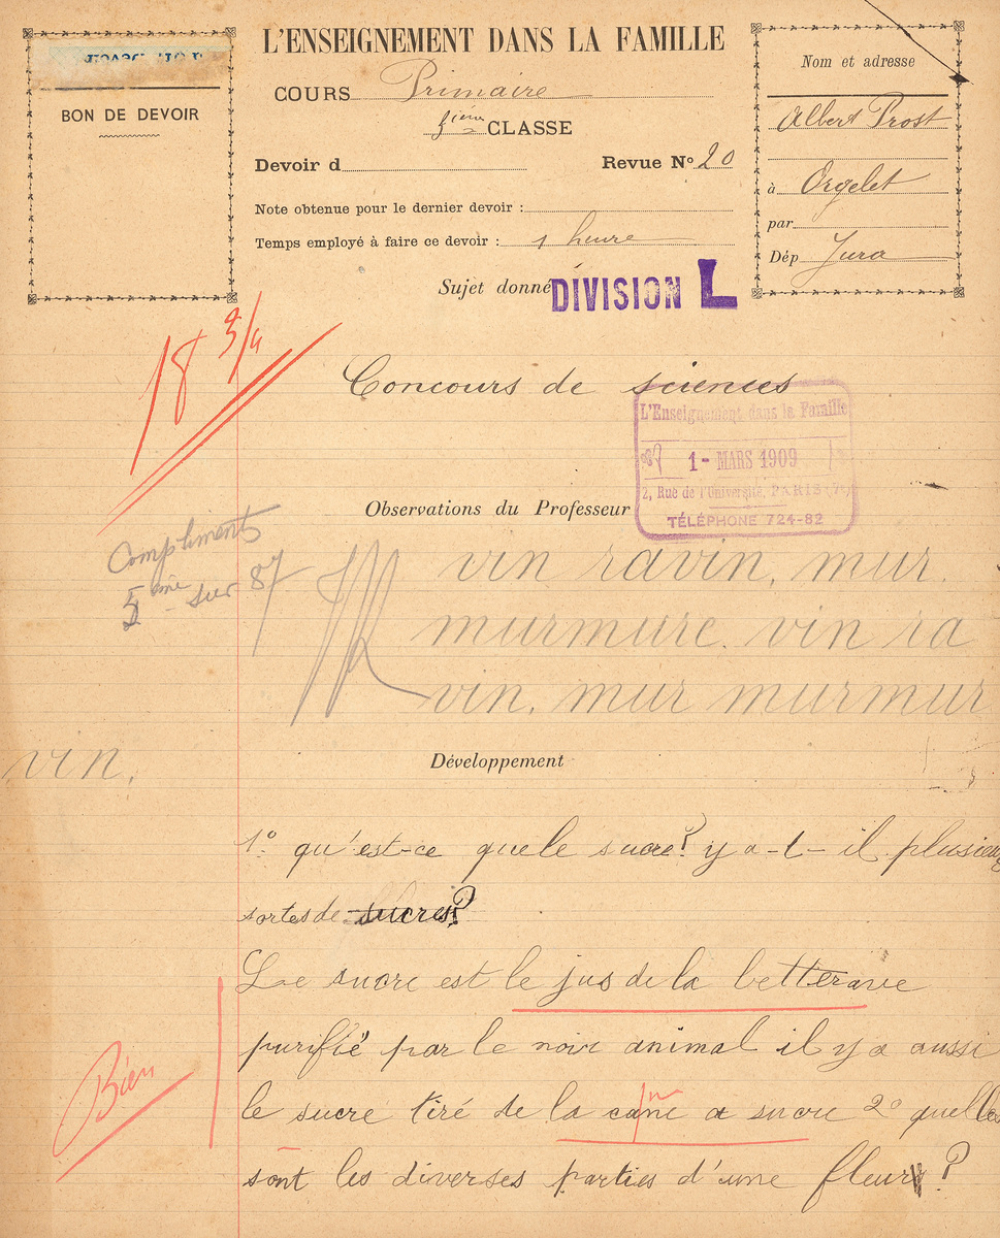 L'ENSEIGNEMENT DANS LA FAMILLE
BON DE DEVOIR
COURS Primaire
3ième CLASSE
Devoir d
Revue N° 20
Note obtenue pour le dernier devoir :
Temps employé à faire ce devoir : 1 heure
Nom et adresse
Albert Prost
à Orgelet
par
Dép Jura
Sujet donné
DIVISION L
18 3/4
Concours de sciences
L'Enseignement dans la Famille
87 1 - MARS 1909
2, Rue de l'Université, PARIS (7e)
TÉLÉPHONE 724-82
Observations du Professeur
Compliments
5ème sur 87
vin ravin, mur.
murmure. vin ra
vin. mur murmur
vin.
Développement
1° qu'est-ce que le sucre? y a-t-il plusieurs
sortes de sucres?
Le sucre est le jus de la betterave
purifié par le noir animal il y a aussi
Bien
le sucre tiré de la cane a sucre 2° quelles
sont les diverses parties d'une fleur ?